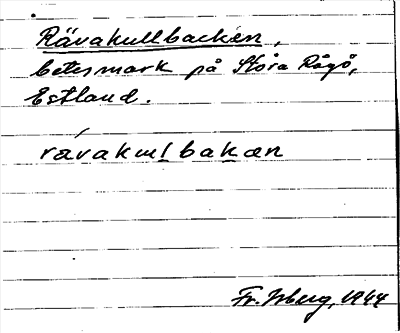 Rävakullbacken,
betesmark på Stora Rågö,
Estland.
rávakuḷbakan
1944